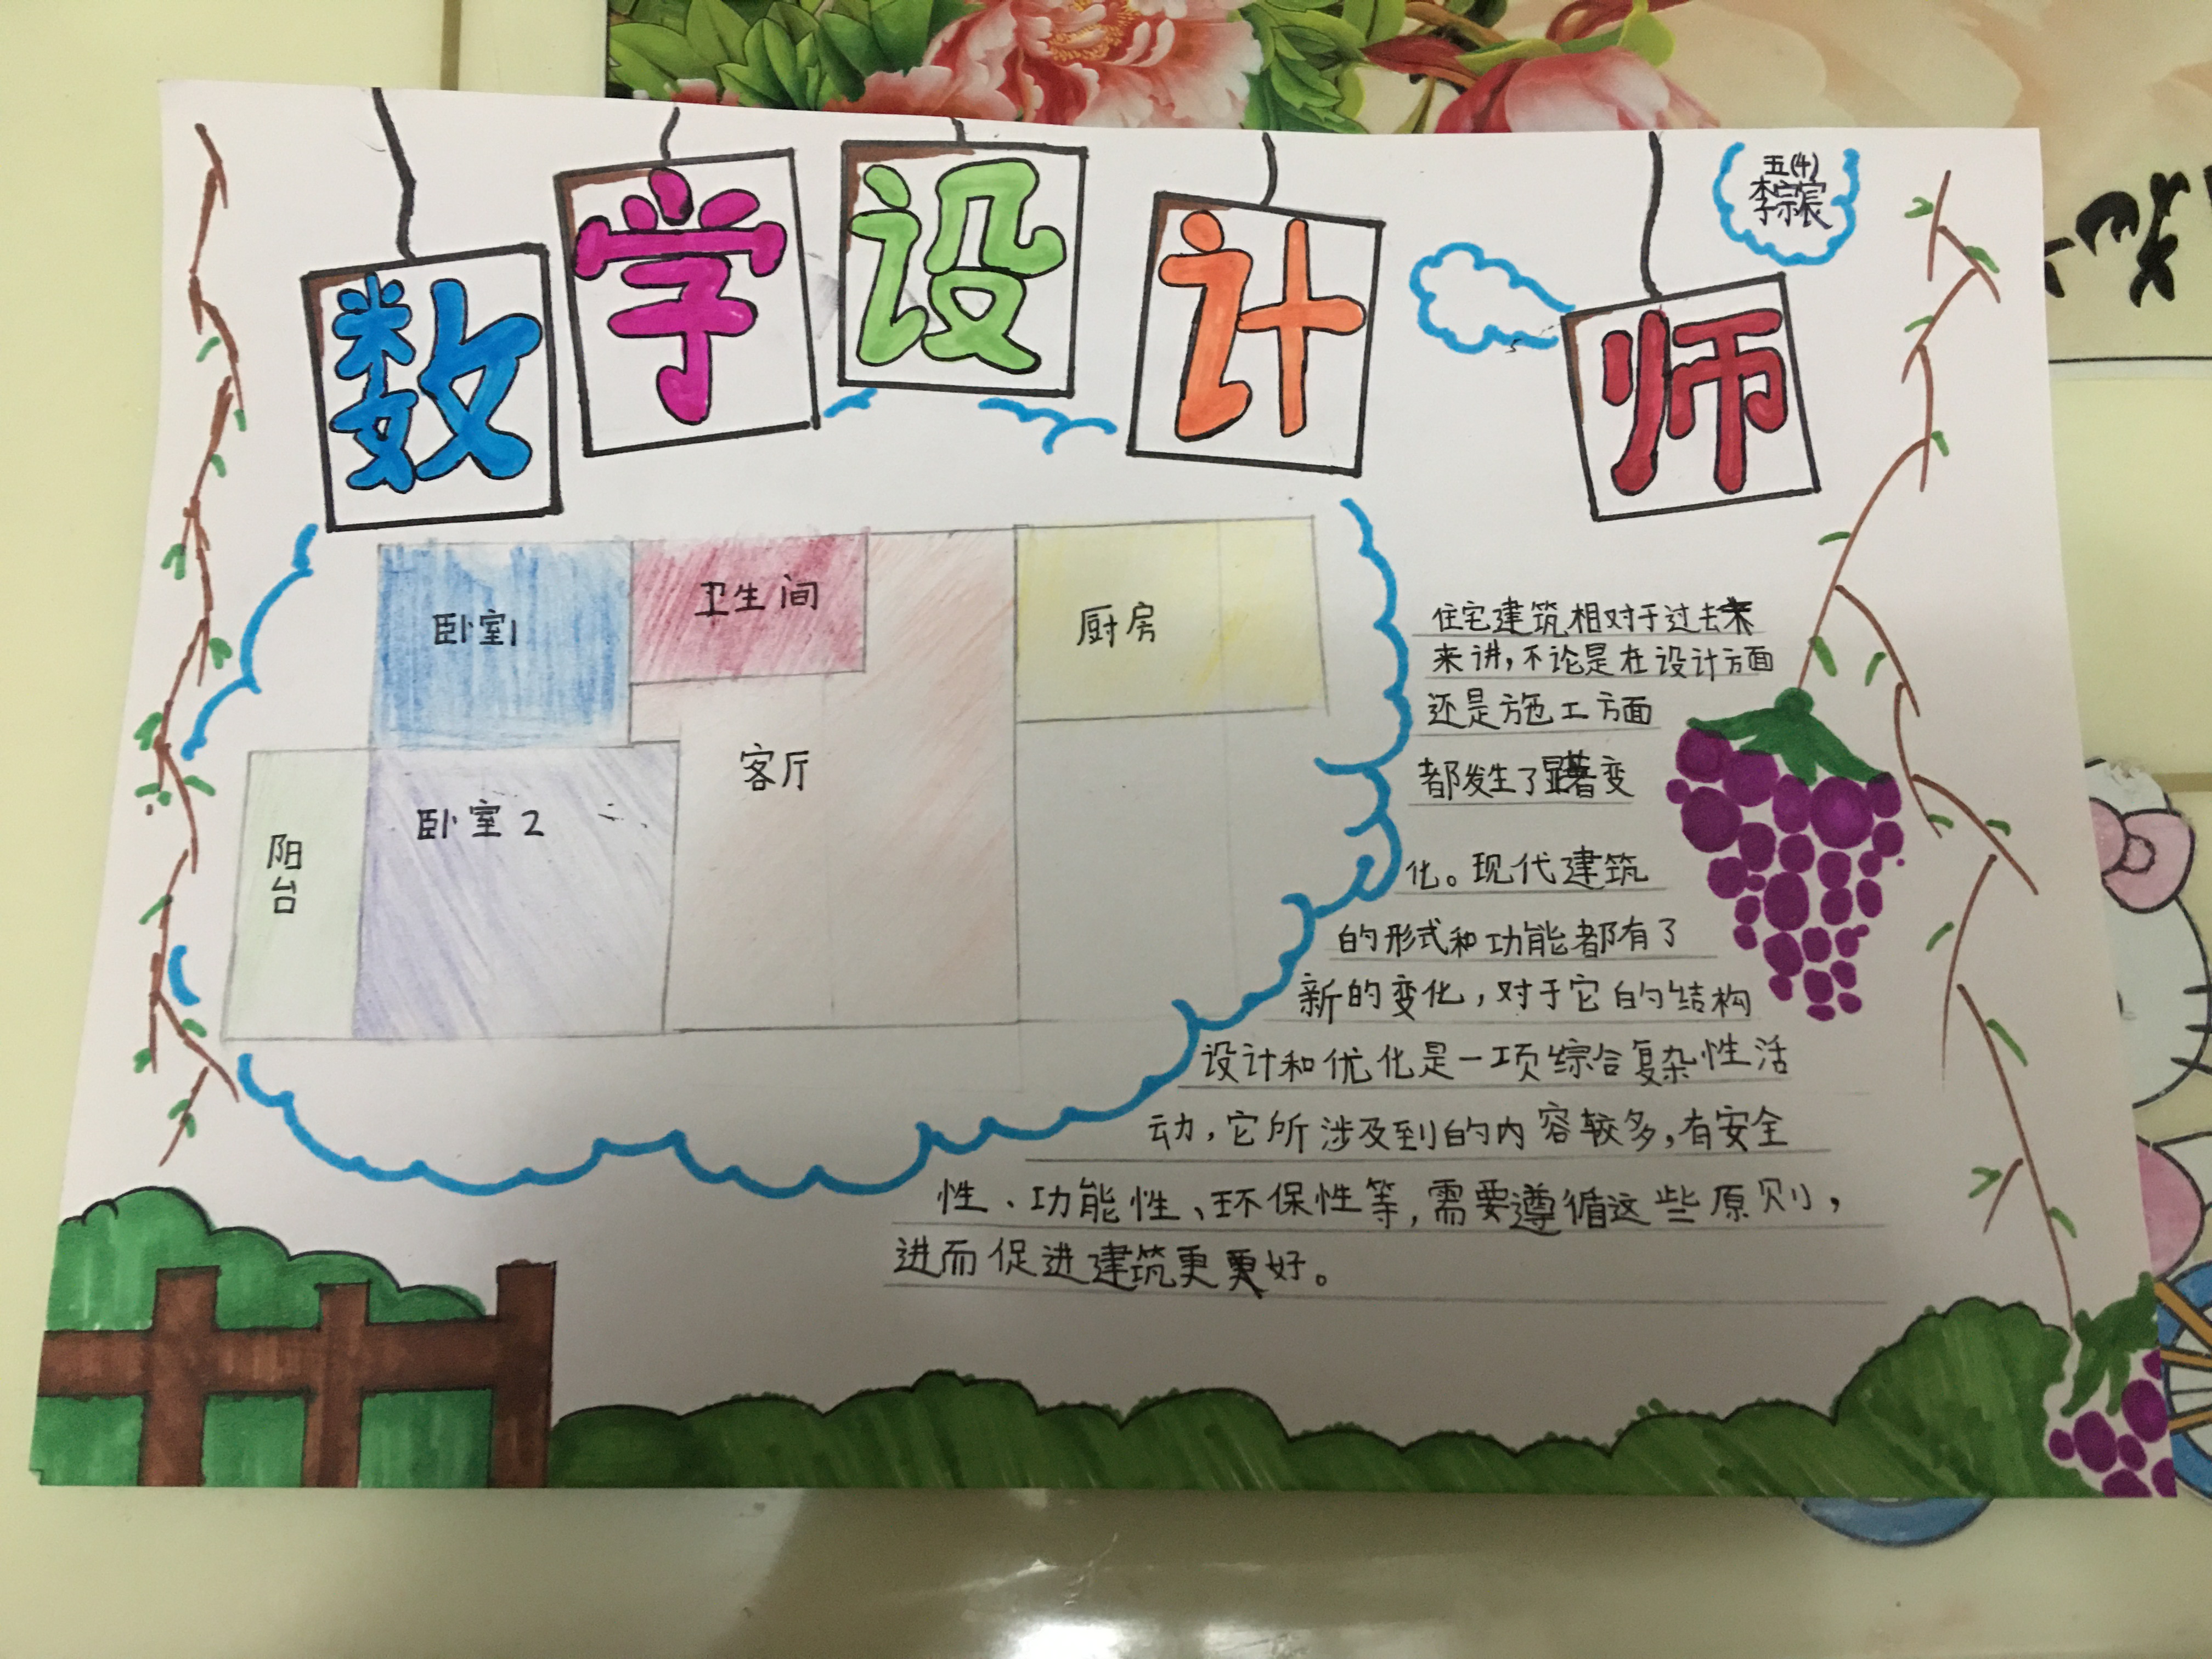 数学设计师
五(4)
李宗宸
卧室1
卫生间
厨房
客厅
卧室2
阳台
住宅建筑相对于过去来
来讲,不论是在设计方面
还是施工方面
都发生了显著变
化。现代建筑
的形式和功能都有了
新的变化,对于它的结构
设计和优化是一项综合复杂性活
动,它所涉及到的内容较多,有安全
性、功能性、环保性等,需要遵循这些原则,
进而促进建筑更更好。